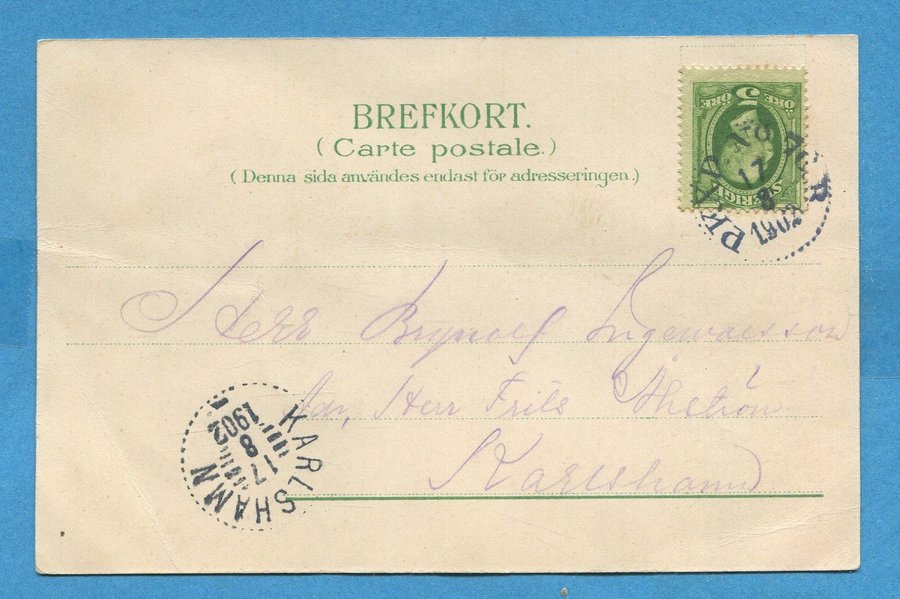 BREFKORT.
(Carte postale.)
(Denna sida användes endast för adresseringen.)
5
ÖRE ÖRE
SVERIGE
17
8
1902
Herr Brynolf Ingevarsson
Adr, Herr Frits Åhström
Karlshamn
KARLSHAMN
17
8
1902